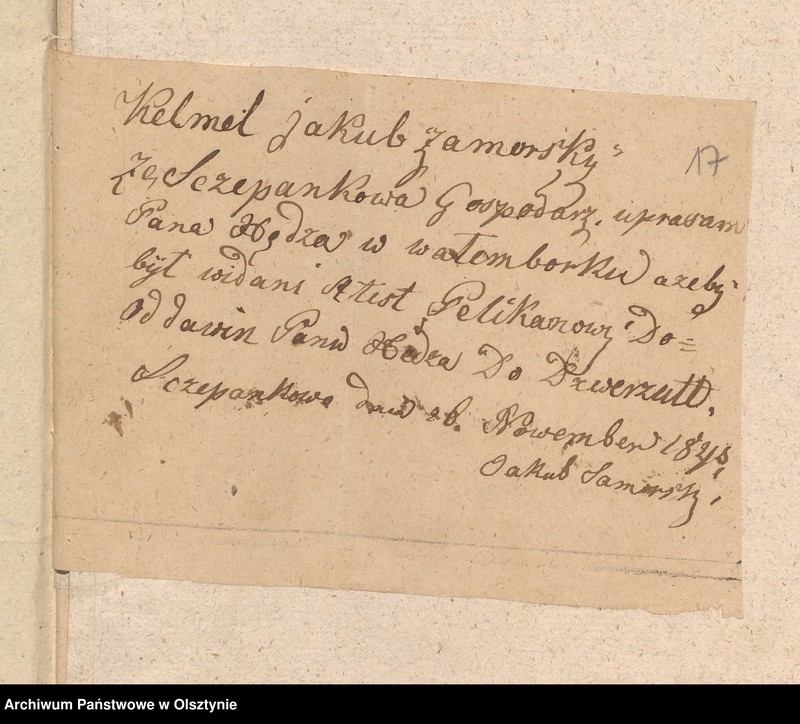 Kelmel jakub Zamorsky
17
Ze Sczepankowa Gospodarz. uprasam
Pana Hędza w watemborku azeby
był widani Atest Pelikanowy Do=
oddawin Panu Hędza Do Dzwerzutt.
Sczepankowa dnia Nowember
Jakub Samorsky
Archiwum Państwowe w Olsztynie